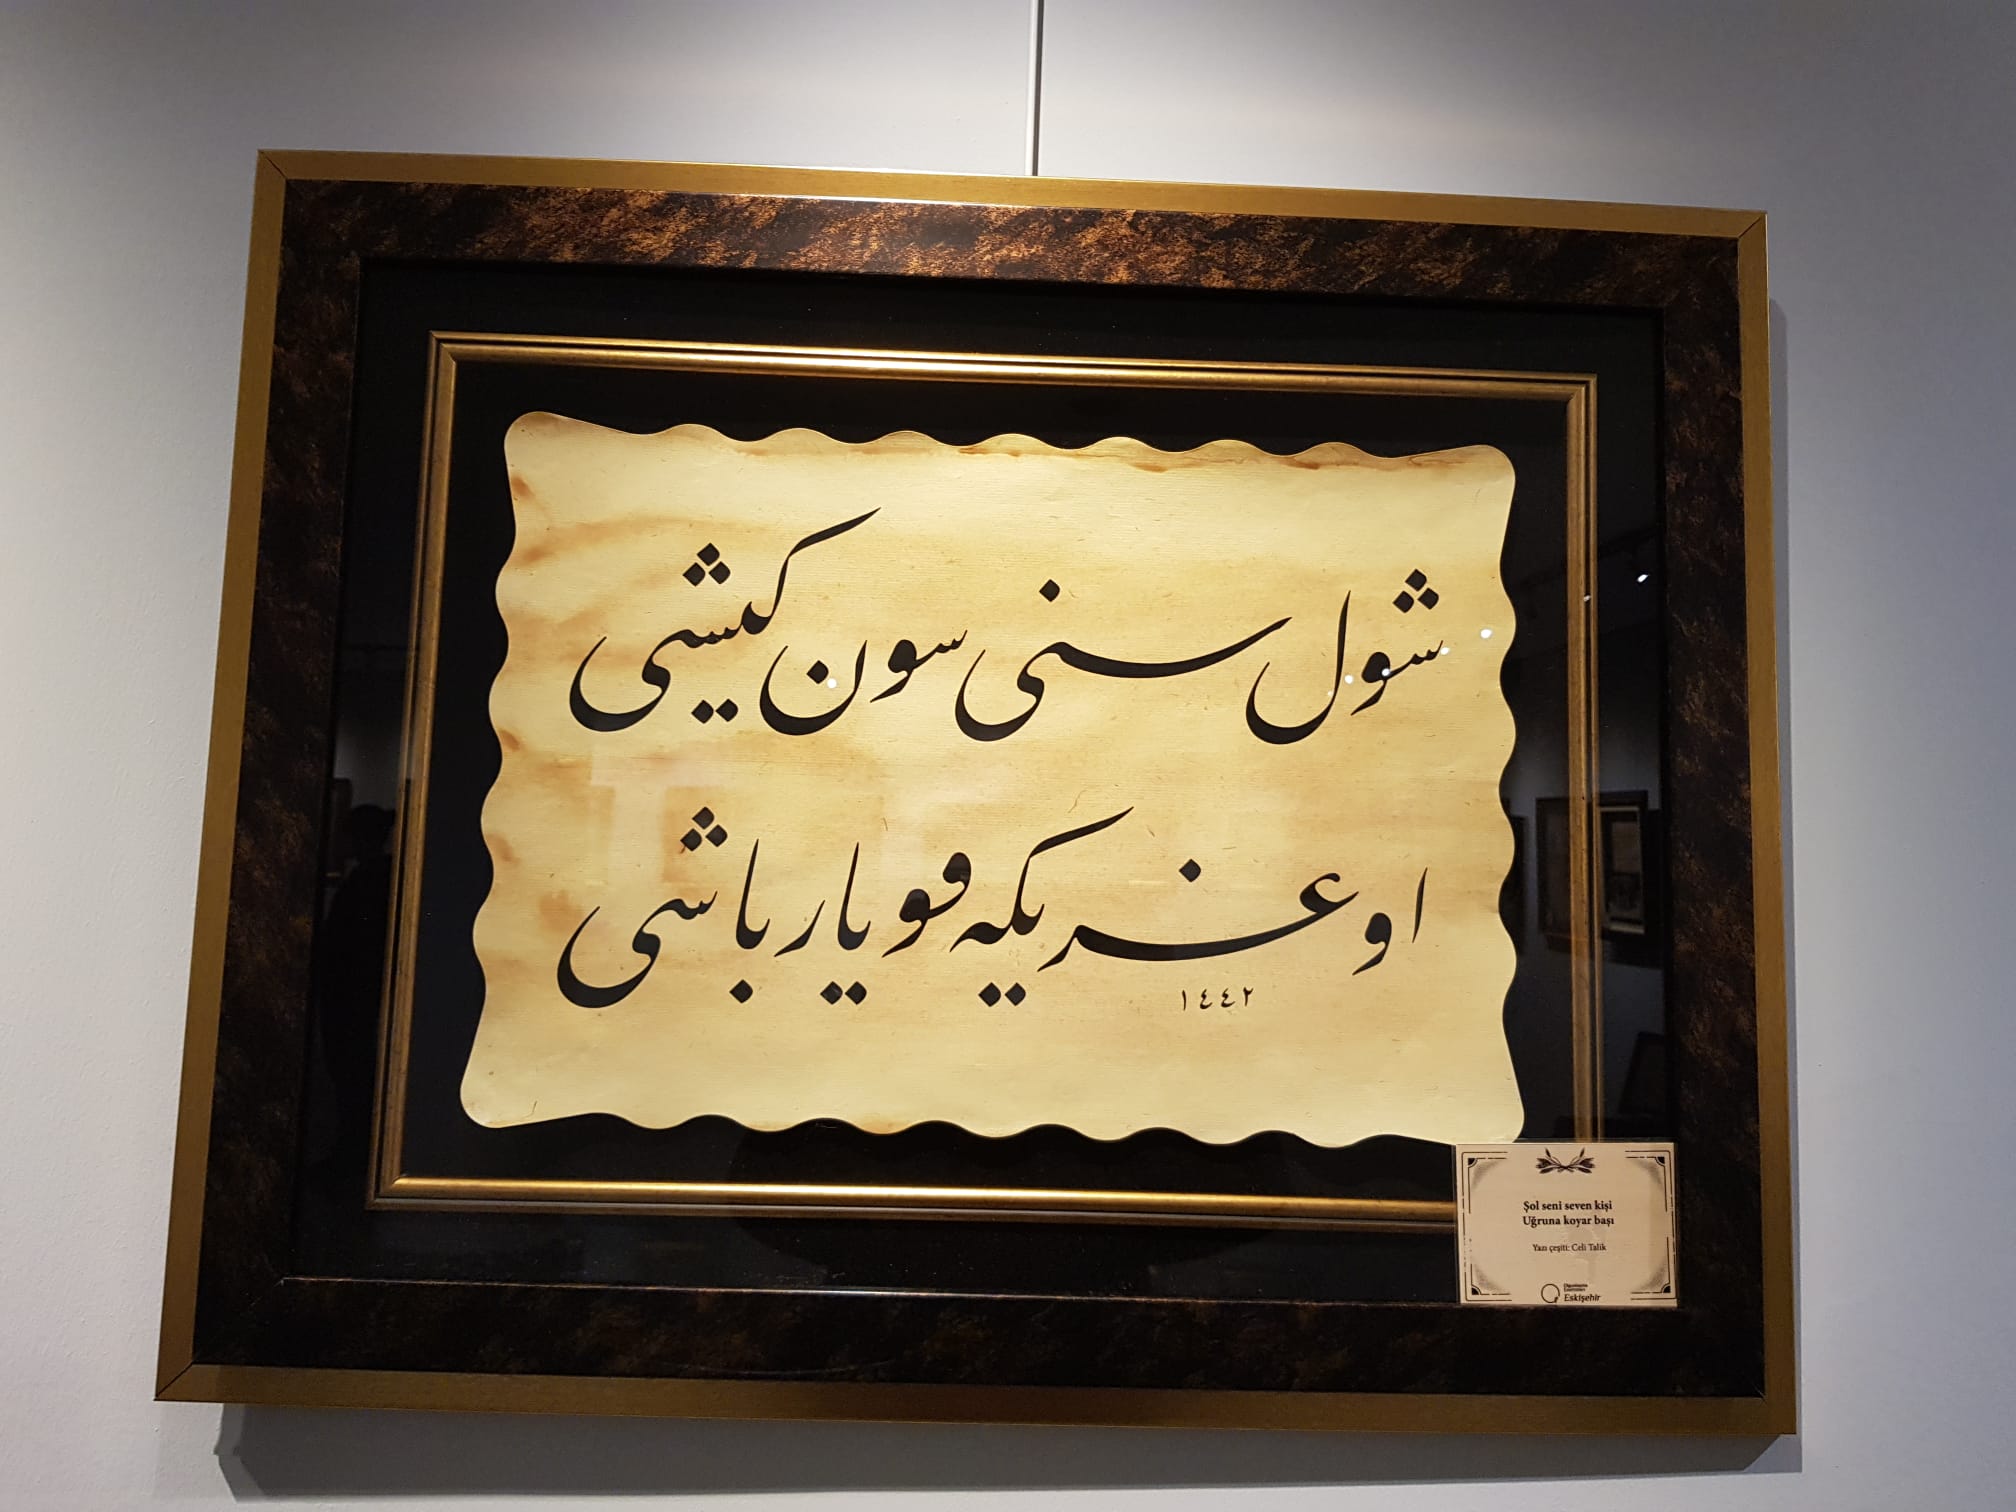 شول سنی سون كیشی
اوغریكه قویار باشی
١٤٤٢
Şol seni seven kişi
Uğruna koyar başı
Yazı çeşiti: Celi Talik
Olgunlaşma
Enstitüleri
Eskişehir